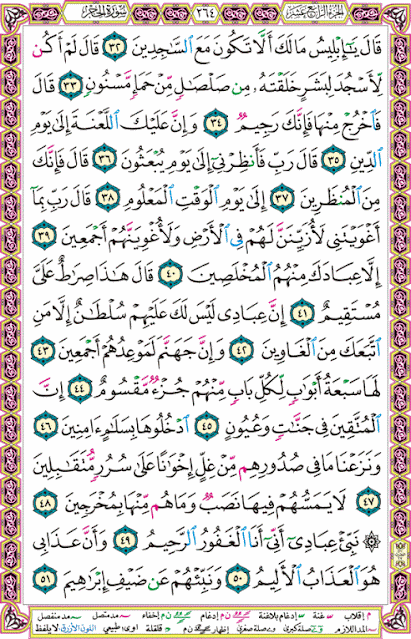 الجزء الرابع عشر ٢٦٤ سورة الحجر
قَالَ يَٰٓإِبْلِيسُ مَا لَكَ أَلَّا تَكُونَ مَعَ ٱلسَّٰجِدِينَ ٣٢ قَالَ لَمْ أَكُن
لِّأَسْجُدَ لِبَشَرٍ خَلَقْتَهُۥ مِن صَلْصَٰلٍ مِّنْ حَمَإٍ مَّسْنُونٍ ٣٣ قَالَ
فَٱخْرُجْ مِنْهَا فَإِنَّكَ رَجِيمٌ ٣٤ وَإِنَّ عَلَيْكَ ٱللَّعْنَةَ إِلَىٰ يَوْمِ
ٱلدِّينِ ٣٥ قَالَ رَبِّ فَأَنظِرْنِىٓ إِلَىٰ يَوْمِ يُبْعَثُونَ ٣٦ قَالَ فَإِنَّكَ
مِنَ ٱلْمُنظَرِينَ ٣٧ إِلَىٰ يَوْمِ ٱلْوَقْتِ ٱلْمَعْلُومِ ٣٨ قَالَ رَبِّ بِمَآ
أَغْوَيْتَنِى لَأُزَيِّنَنَّ لَهُمْ فِى ٱلْأَرْضِ وَلَأُغْوِيَنَّهُمْ أَجْمَعِينَ ٣٩
إِلَّا عِبَادَكَ مِنْهُمُ ٱلْمُخْلَصِينَ ٤٠ قَالَ هَٰذَا صِرَٰطٌ عَلَىَّ
مُسْتَقِيمٌ ٤١ إِنَّ عِبَادِى لَيْسَ لَكَ عَلَيْهِمْ سُلْطَٰنٌ إِلَّا مَنِ
ٱتَّبَعَكَ مِنَ ٱلْغَاوِينَ ٤٢ وَإِنَّ جَهَنَّمَ لَمَوْعِدُهُمْ أَجْمَعِينَ ٤٣
لَهَا سَبْعَةُ أَبْوَٰبٍ لِّكُلِّ بَابٍ مِّنْهُمْ جُزْءٌ مَّقْسُومٌ ٤٤ إِنَّ
ٱلْمُتَّقِينَ فِى جَنَّٰتٍ وَعُيُونٍ ٤٥ ٱدْخُلُوهَا بِسَلَٰمٍ ءَامِنِينَ ٤٦
وَنَزَعْنَا مَا فِى صُدُورِهِم مِّنْ غِلٍّ إِخْوَٰنًا عَلَىٰ سُرُرٍ مُّتَقَٰبِلِينَ
٤٧ لَا يَمَسُّهُمْ فِيهَا نَصَبٌ وَمَا هُم مِّنْهَا بِمُخْرَجِينَ ٤٨
۞ نَبِّئْ عِبَادِىٓ أَنِّىٓ أَنَا ٱلْغَفُورُ ٱلرَّحِيمُ ٤٩ وَأَنَّ عَذَابِى
هُوَ ٱلْعَذَابُ ٱلْأَلِيمُ ٥٠ وَنَبِّئْهُمْ عَن ضَيْفِ إِبْرَٰهِيمَ ٥١